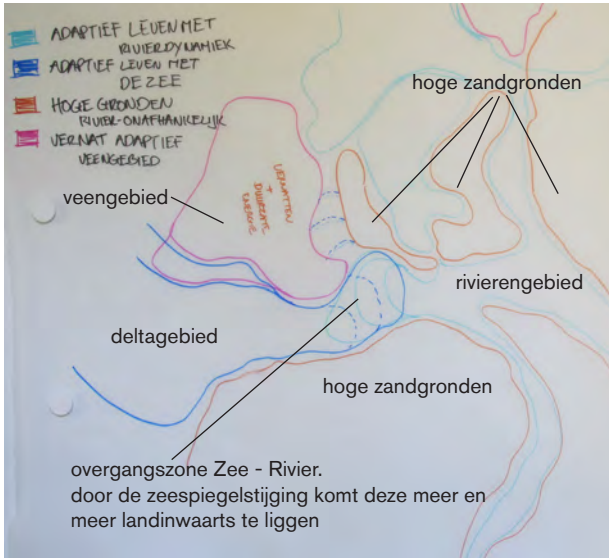 ADAPTIEF LEVEN MET
RIVIERDYNAMIEK
ADAPTIEF LEVEN MET
DE ZEE
HOGE GRONDEN
RIVIER-ONAFHANKELIJK
VERNAT ADAPTIEF
VEENGEBIED
hoge zandgronden
veengebied
VERNATTEN
+
DUURZATE
ENERGIE
rivierengebied
deltagebied
hoge zandgronden
overgangszone Zee - Rivier.
door de zeespiegelstijging komt deze meer en
meer landinwaarts te liggen